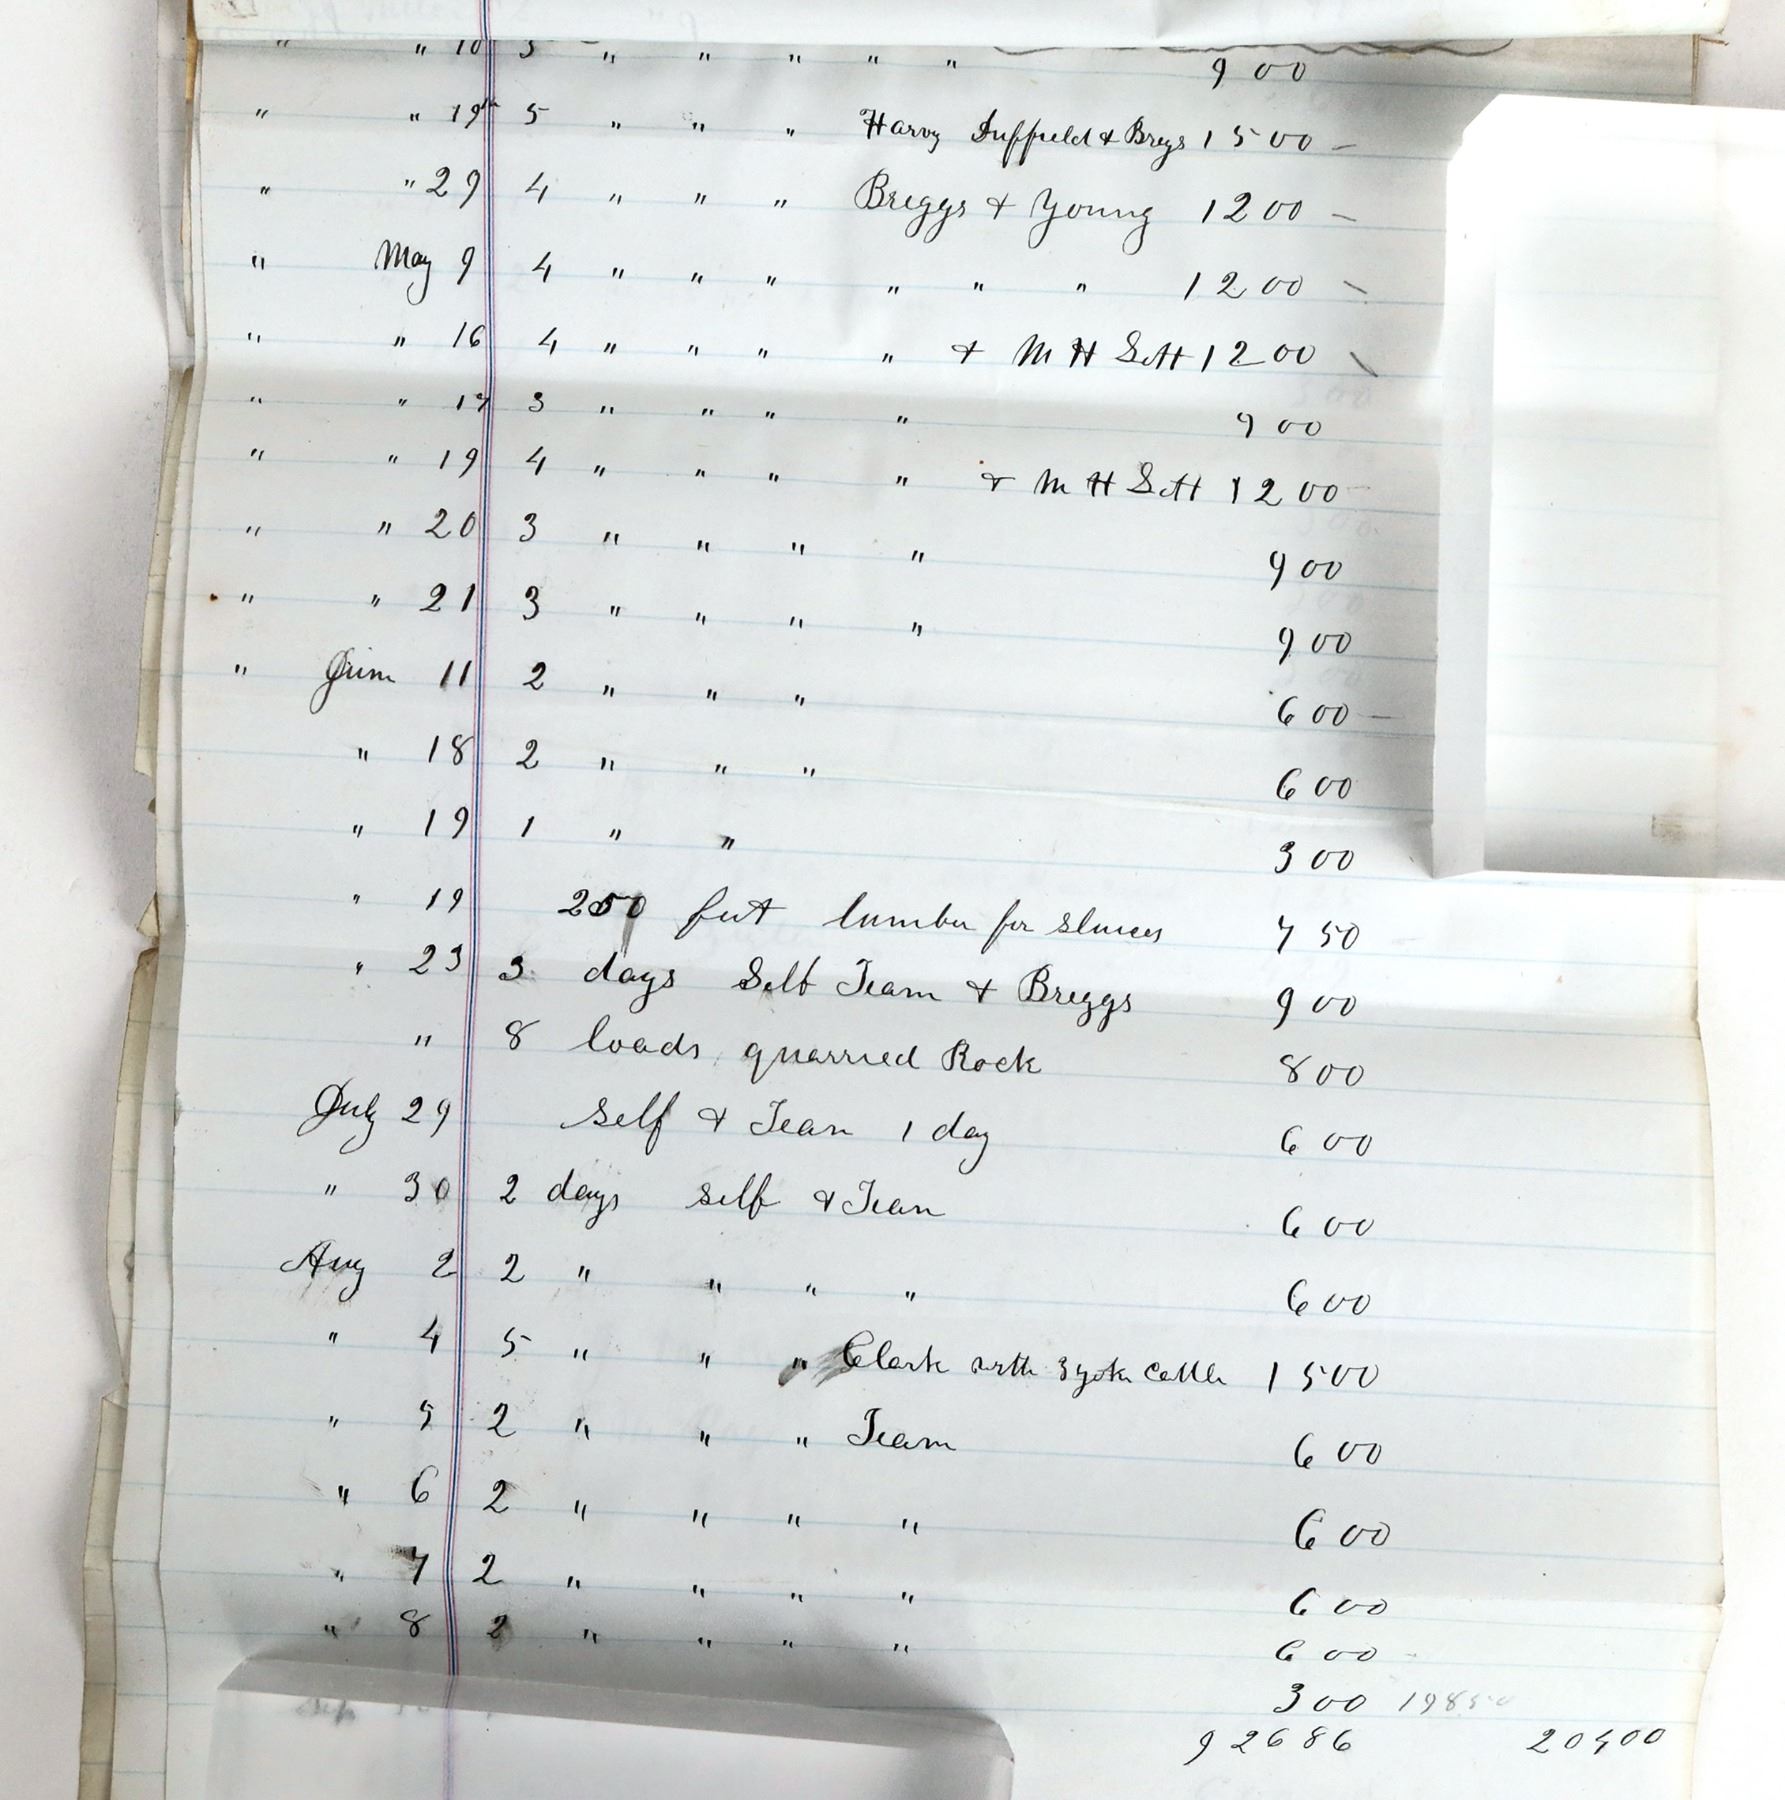 " " 10 3 " " " " " 9 00
" " 19th 5 " " " Harvy Duffield & Brigs 15 00 -
" " 29 4 " " " Briggs & Young 12 00 -
" May 9 4 " " " " " " 12 00 -
" " 16 4 " " " " & M H Sett 12 00
" " 17 3 " " " " 9 00
" " 19 4 " " " " & M H Sett 12 00 -
" " 20 3 " " " " 9 00
" " 21 3 " " " " 9 00
" June 11 2 " " " 6 00 -
" 18 2 " " " 6 00
" 19 1 " " 3 00
" 19 250 feet lumber for sluices 7 50
" 23 3 days Self Team & Briggs 9 00
" 8 loads quarried Rock 8 00
July 29 self & Team 1 day 6 00
" 30 2 days self & Team 6 00
Aug 2 2 " " " " 6 00
" 4 5 " " " Clark with 3 yoke Cattle 15 00
" 5 2 " " " Team 6 00
" 6 2 " " " " 6 00
" 7 2 " " " " 6 00
" 8 2 " " " " 6 00
3 00 198 50
926 86 204 00